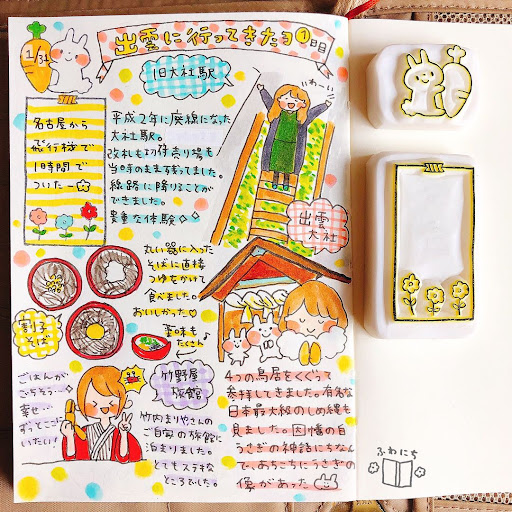 1/31
出雲に行ってきたヨ①日目
旧大社駅
わーい
名古屋から
飛行機で
1時間で
ついたー
平成2年に廃線になった
大社駅。
改札も切符売り場も
当時のまま残ってました。
線路に降りることが
できました。
貴重な体験◇◇
出雲
大社
丸い器に入った
そばに直接
つゆをかけて
食べました。
おいしかった♡
薬味も
たくさん♪
割子
そば
竹野屋
旅館
ごはんが
ごうそう…
幸せ…
ずっとここに
いたい!
竹内まりやさんの
ご自家の旅館に
泊まりました。
とてもステキな
ところでした。
4つの鳥居をくぐって
参拝してきました。有名な
日本最大級のしめ縄も
見ました。因幡の白
うさぎの神話にちなん
で、あちこちにうさぎの
像があった
ふわにち